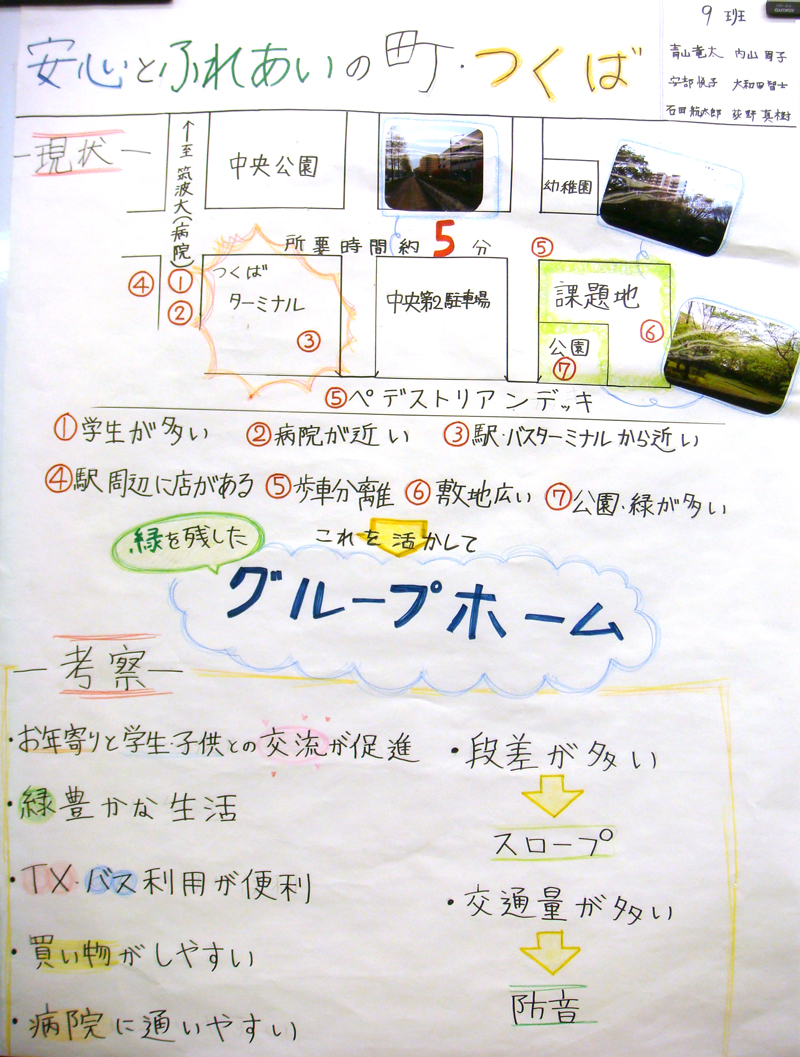 9 班
安心とふれあいの町・つくば
青山竜太 内山周子
安部悦子 大和田智士
石田航太郎 荻野真樹
現状
↑至筑波大(病院)
中央公園
幼稚園
所要時間約5分
⑤
④
①
②
つくば
ターミナル
③
中央第2駐車場
課題地
⑥
公園
⑦
⑤ペデストリアンデッキ
①学生が多い ②病院が近い ③駅・バスターミナルから近い
④駅周辺に店がある ⑤歩車分離 ⑥敷地広い ⑦公園・緑が多い
緑を残した
これを活かして
グループホーム
考察
・お年寄りと学生・子供との交流が促進
・緑豊かな生活
・TX・バス利用が便利
・買い物がしやすい
・病院に通いやすい
・段差が多い
スロープ
・交通量が多い
防音